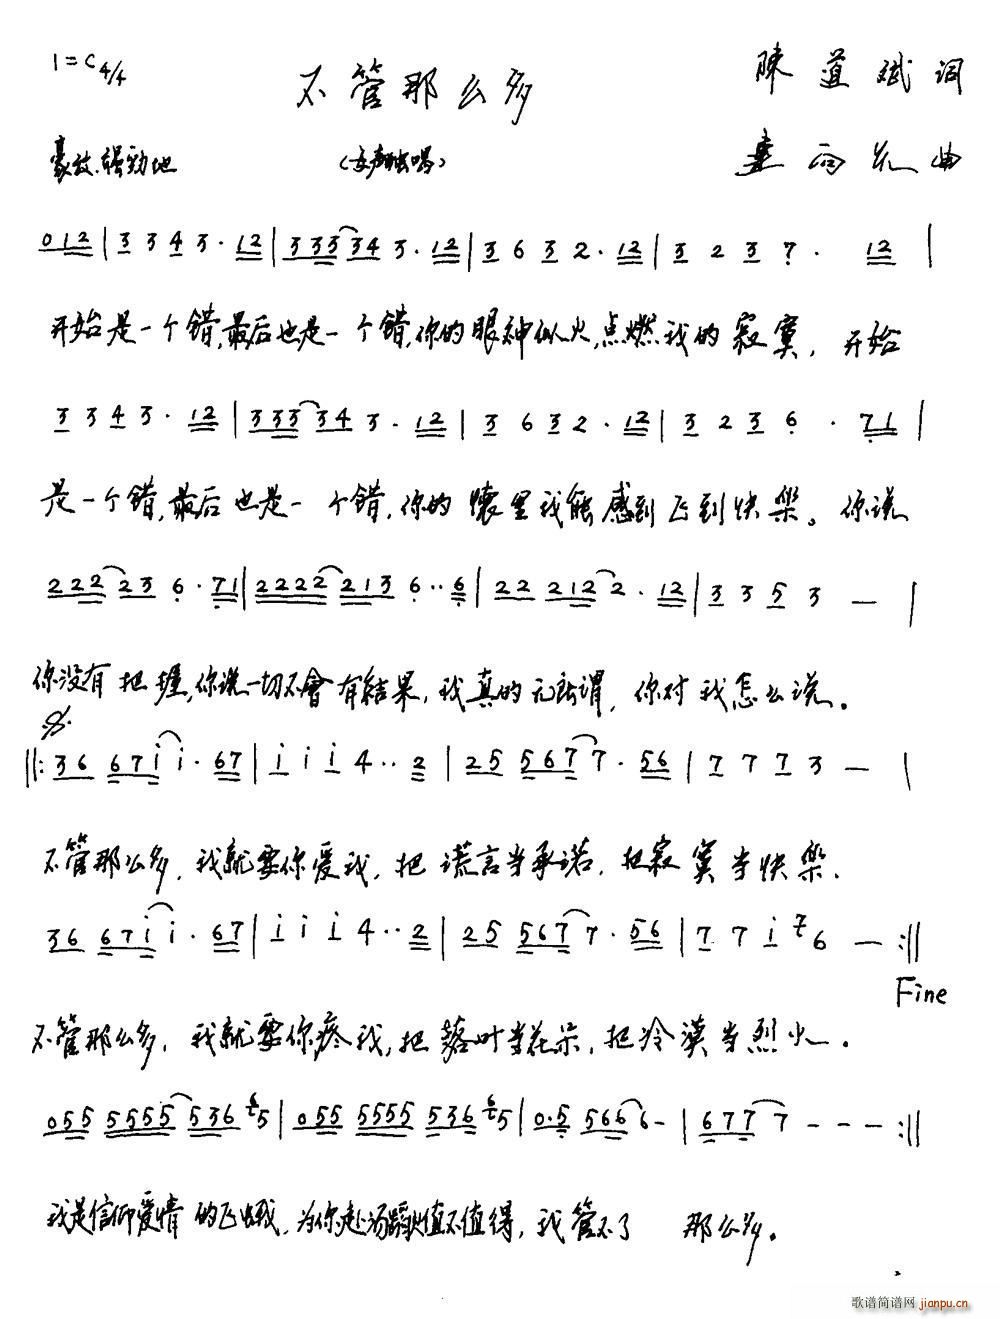 1=C 4/4
不管那么多
陳道斌词
豪放.强劲地
(女声独唱)
曲
0 1 2 | 3 3 4 3 · 1 2 | 3 3 3 3 4 3 · 1 2 | 3 6 3 2 · 1 2 | 3 2 3 7 · 1 2 |
开始是一个错,最后也是一个错,你的眼神似火,点燃我的寂寞, 开始
3 3 4 3 · 1 2 | 3 3 3 3 4 3 · 1 2 | 3 6 3 2 · 1 2 | 3 2 3 6 · 7 1 |
是一个错,最后也是一个错,你的懷里我能感到飞到快樂。你说
2 2 2 2 3 6 · 7 1 | 2 2 2 2 2 1 3 6 ·· 6 | 2 2 2 1 2 2 · 1 2 | 3 3 5 3 — |
你没有把握,你说一切不會有结果,我真的无所谓,你对我怎么说。
||: 3 6 6 7 i i · 6 7 | i i i 4 ·· 2 | 2 5 5 6 7 7 · 5 6 | 7 7 7 3 — |
不管那么多,我就要你爱我,把谎言当承诺,把寂寞当快樂.
3 6 6 7 i i · 6 7 | i i i 4 ·· 2 | 2 5 5 6 7 7 · 5 6 | 7 7 i 7 6 — :||
Fine
不管那么多,我就要你疼我,把落叶当花朵,把冷漠当烈火.
0 5 5 5 5 5 5 5 3 6 6 5 | 0 5 5 5 5 5 5 5 3 6 6 5 | 0 · 5 5 6 6 6 - | 6 7 7 7 - - - :||
我是信仰爱情的飞蛾,为你赴汤蹈火值不值得,我管不了 那么多。
歌谱简谱网 jianpu.cn